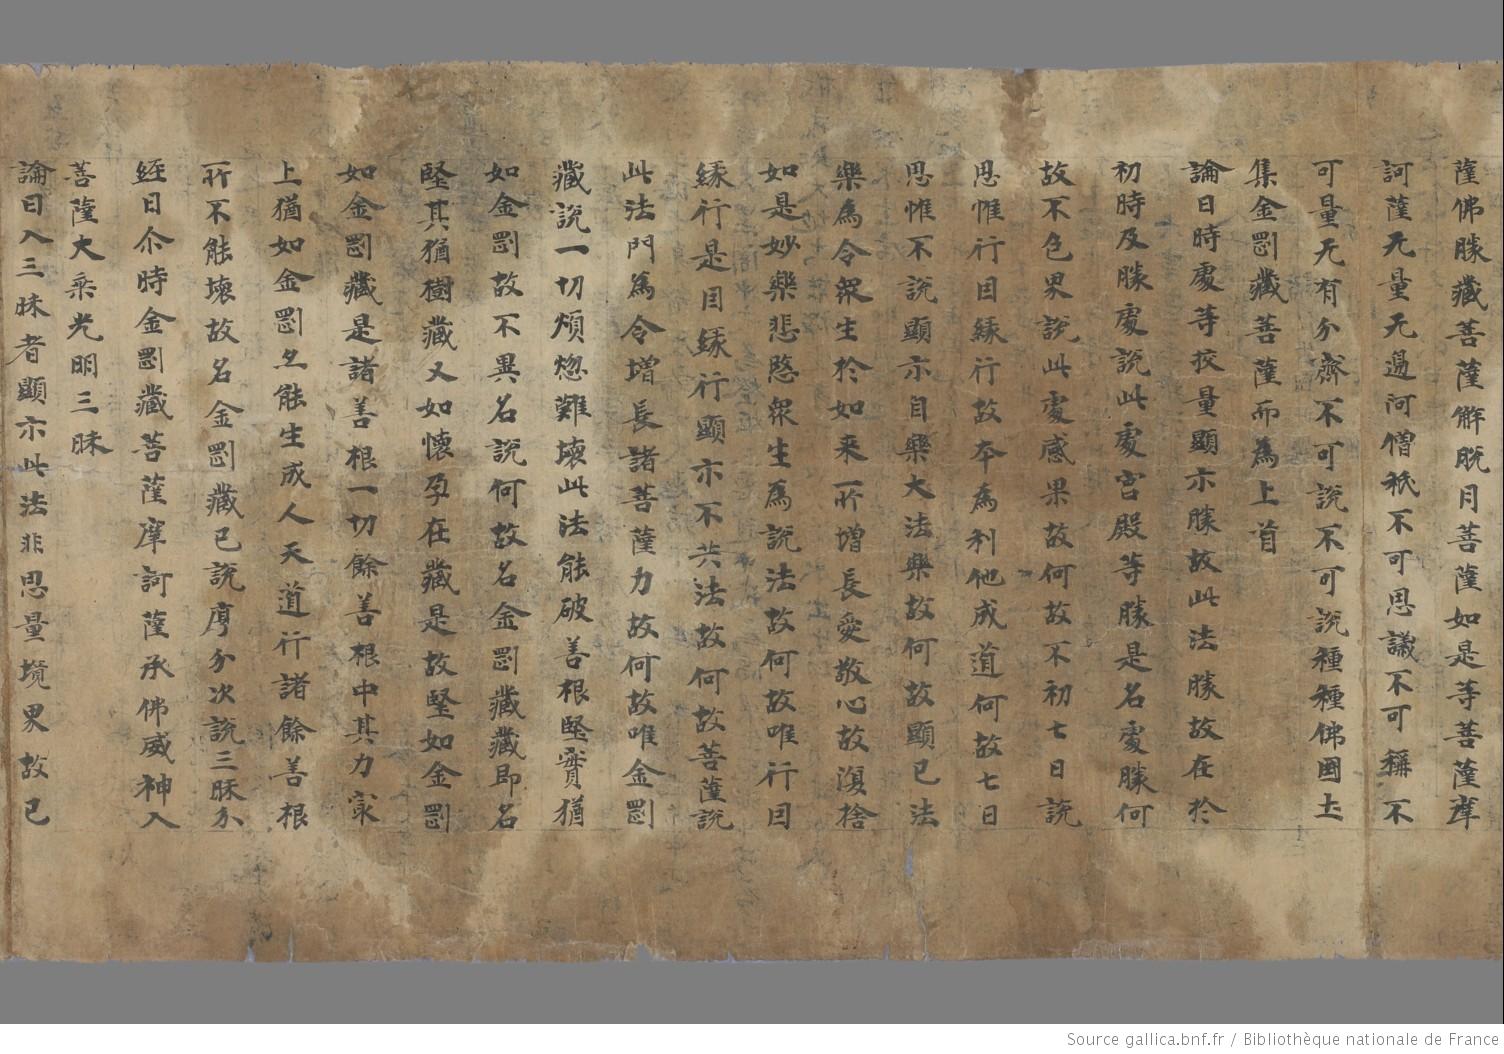 薩佛勝藏菩薩解脫月菩薩如是等菩薩摩
訶薩无量无邊阿僧祇不可思議不可稱不
可量无有分齊不可說不可說種種佛國土
集金剛藏菩薩而為上首
論曰時處等挍量顯示勝故此法勝故在於
初時及勝處說此處宮殿等勝是名處勝何
故不色界說此處感果故何故不初七日說
思惟行因緣行故本為利他成道何故七日
思惟不說顯示自樂大法樂故何故顯已法
樂為令眾生於如来所增長愛敬心故復捨
如是妙樂悲愍眾生為說法故何故唯行因
緣行是因緣行顯示不共法故何故菩薩說
此法門為令增長諸菩薩力故何故唯金剛
藏說一切煩惚難壞此法能破善根堅實猶
如金剛故不異名說何故名金剛藏藏即名
堅其猶樹藏又如懷孕在藏是故堅如金剛
如金剛藏是諸善根一切餘善根中其力㝡
上猶如金剛亦能生成人天道行諸餘善根
所不能壞故名金剛藏已說序分次說三昧分
經曰尒時金剛藏菩薩摩訶薩承佛威神入
菩薩大乘光明三昧
論曰入三昧者顯示此法非思量境界故已